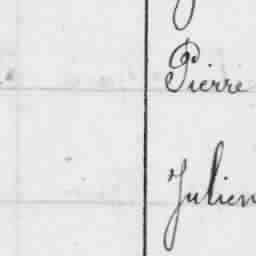 Pierre
Julien